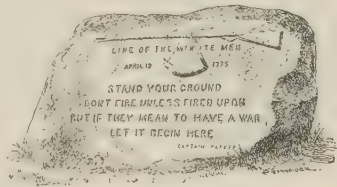 LINE OF THE MINUTE MEN
APRIL 19 1775
STAND YOUR GROUND
DONT FIRE UNLESS FIRED UPON
BUT IF THEY MEAN TO HAVE A WAR
LET IT BEGIN HERE
CAPTAIN PARKER